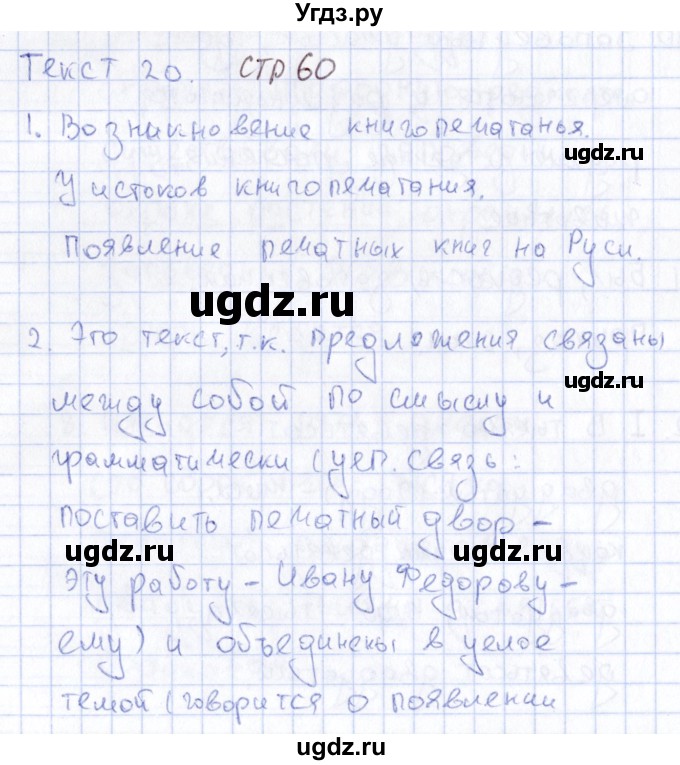 Угдз.ру
Текст 20. стр 60
1. Возникновение книгопечатанья.
У истоков книгопечатания.
Появление печатных книг на Руси.
2. Это текст, т.к. предложения связаны
между собой по смыслу и
грамматически (цеп. связь:
поставить печатный двор –
эту работу – Ивану Федорову –
ему) и объединены в целое
темой (говорится о появлении
ugdz.ru
ugdz.ru
ugdz.ru
ugdz.ru
ugdz.ru
ugdz.ru
ugdz.ru
ugdz.ru